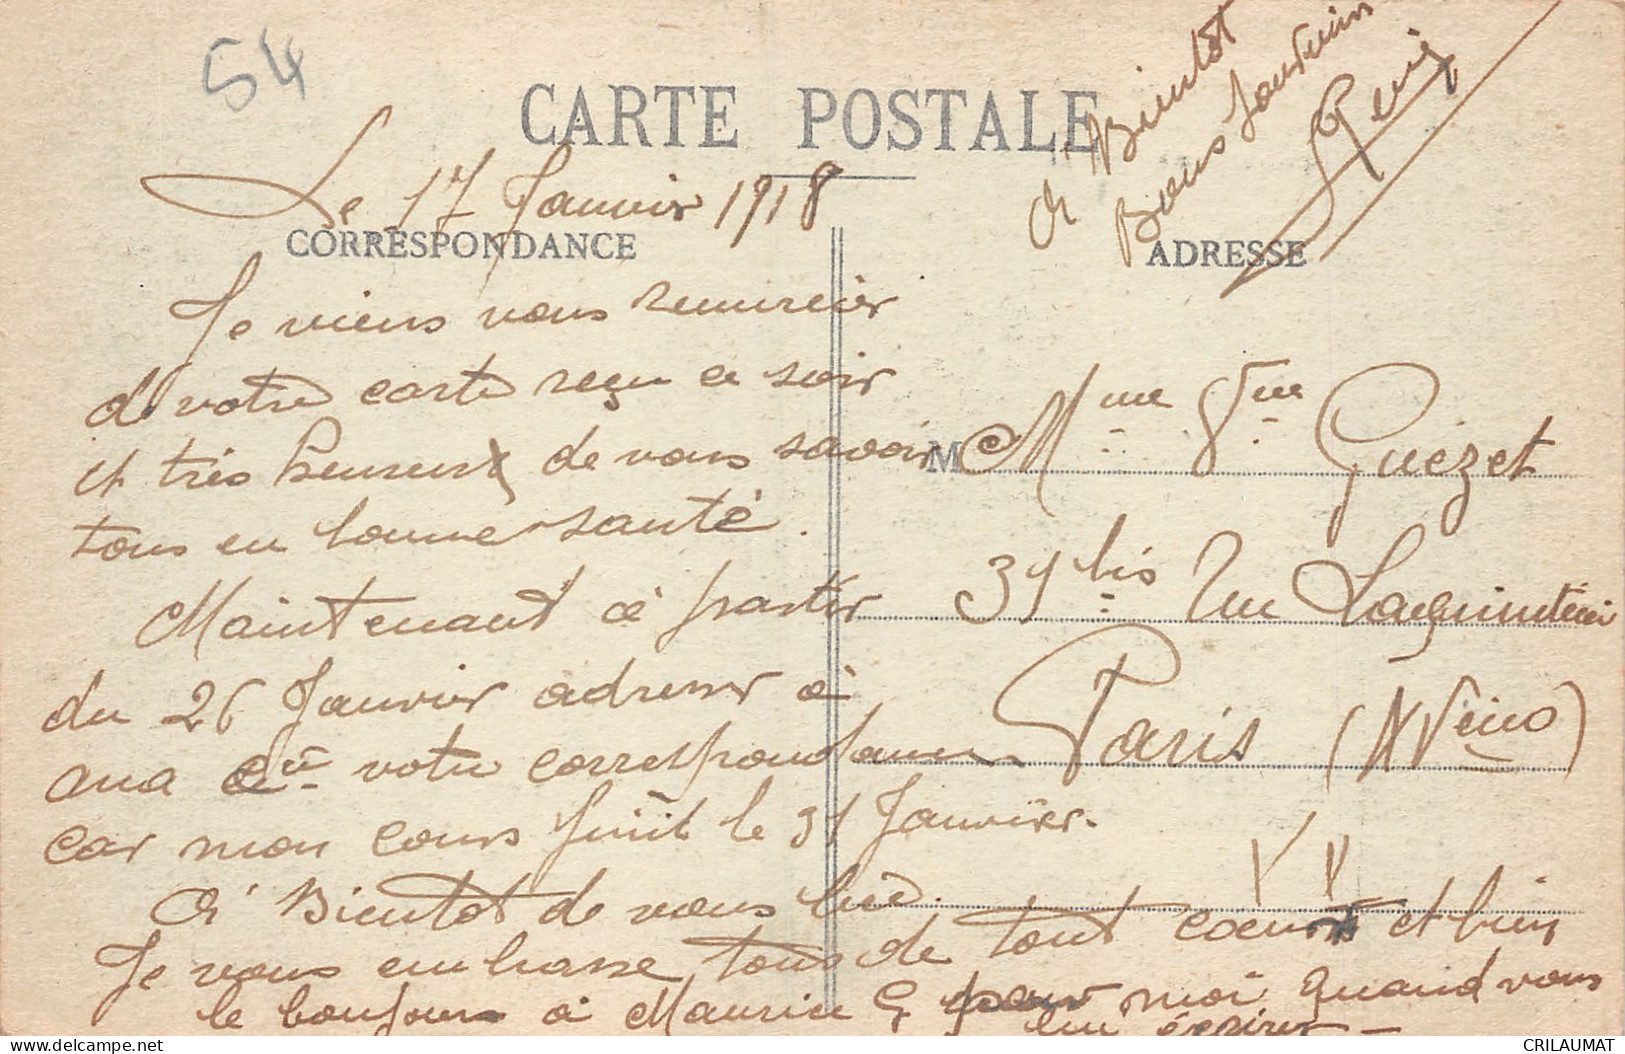 54
CARTE POSTALE
Le 17 Janvier 1918
CORRESPONDANCE
Je viens vous remercier
de votre carte reçu ce soir
et très heureux de vous savoir
tous en bonne santé.
Maintenant à partir
du 26 Janvier adresser à
ma Cie votre correspondance
car mon cours finit le 31 Janvier.
A Bientot de vous lire.
Je vous embrasse tous de tout coeur et bien
le bonjour à Maurice G pour moi quand vous
lui écrirez
A Bientôt
Bons Souvenirs
ADRESSE
M Mme Vve Guézet
31 bis Rue Laquintinie
Paris (XVeme)
delcampe.net
CRILAUMAT